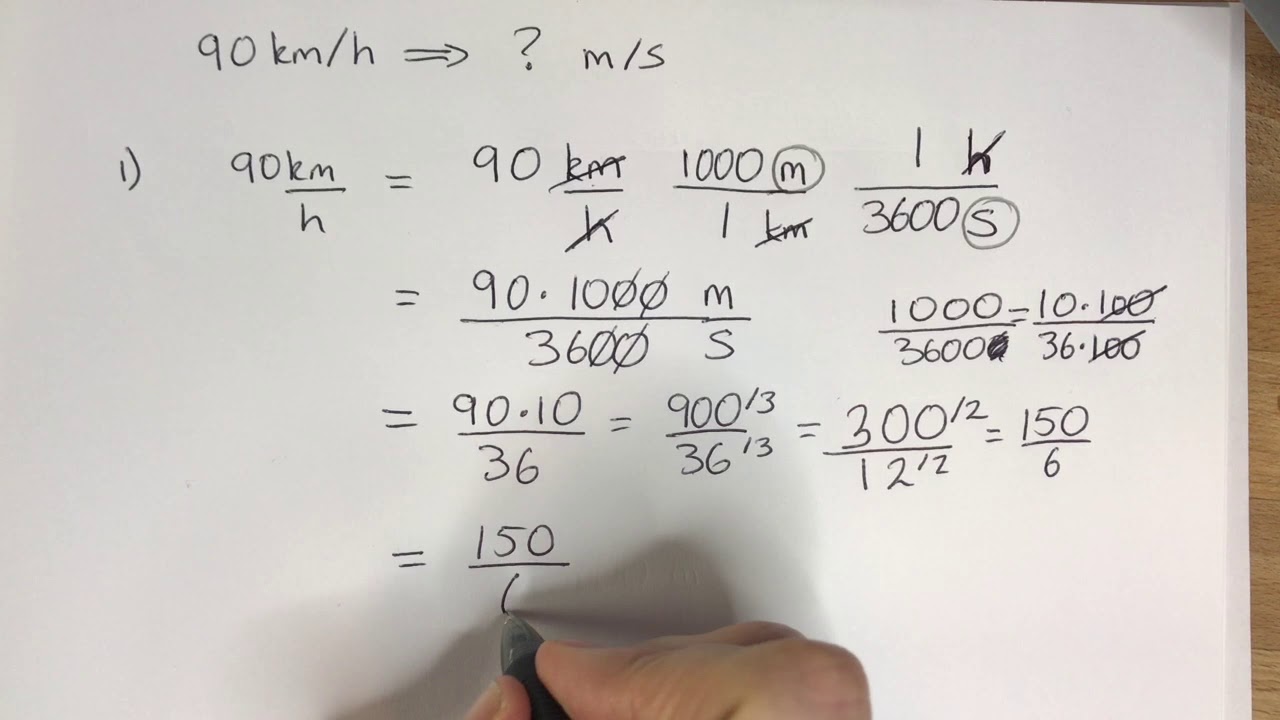 90 km/h ⟹ ? m/s
1) 90 km/h = 90 km/h 1000 m/1 km 1 h/3600 s
= 90·1000 m/3600 s
1000/3600 = 10·100/36·100
= 90·10/36 = 900/3/36/3 = 300/2/12/2 = 150/6
= 150/(